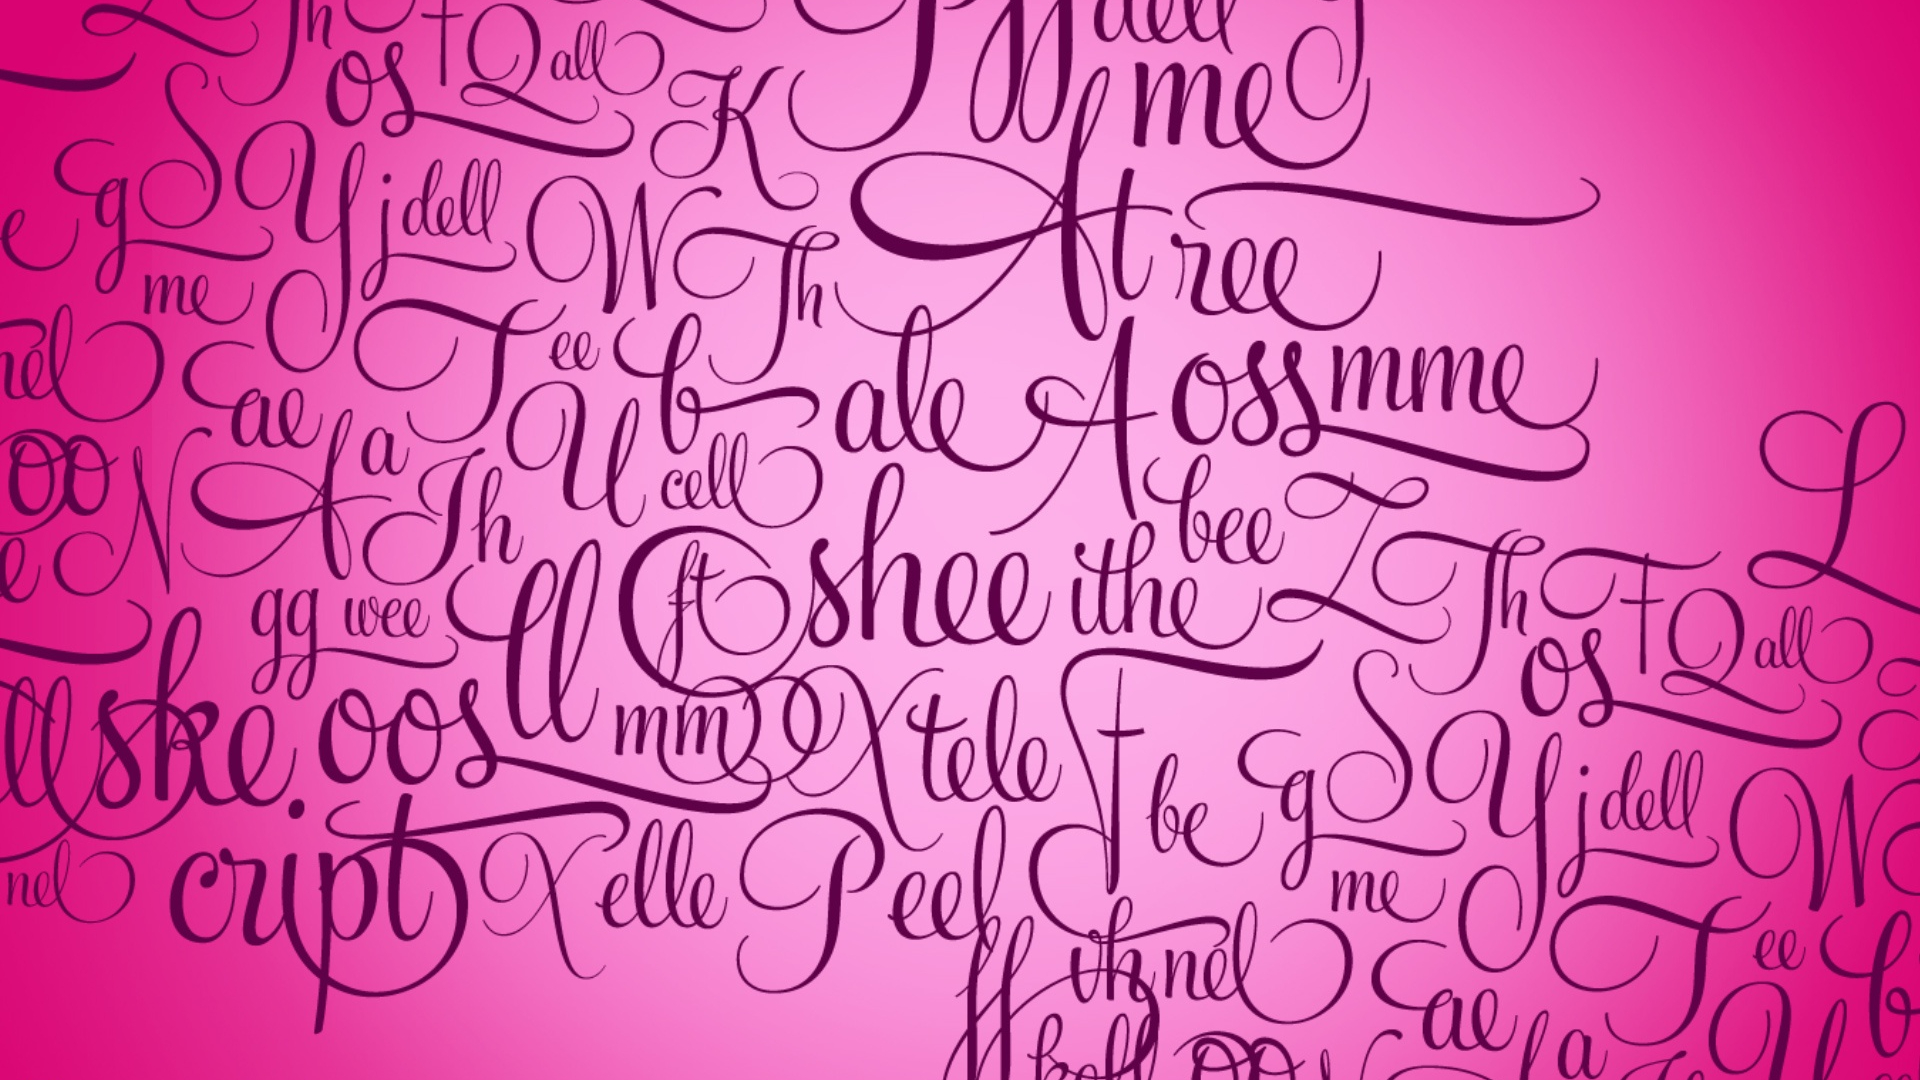 Th
os
F
Q
all
dell
K
me
g
S
Y
j
dell
W
Th
At
ree
me
T
ee
b
ale
A
oss
mme
nel
ae
a
U
cell
L
oo
N
A
Th
bee
Z
gg
wee
ll
O
ft
shee
ithe
Th
F
Q
all
os
ll
ske
oos
mm
X
tele
F
be
g
S
Y
j
dell
W
nel
cript
X
elle
P
eel
me
th
nel
T
ee
b
ae
a
U
oo